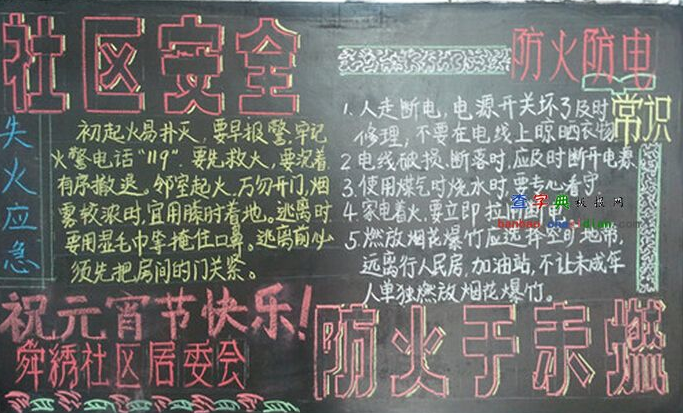 社区安全
失火应急
初起火易扑灭,要早报警,牢记
火警电话"119"。要先救火,要沉着
有序撤退。邻室起火,万勿开门,烟
雾较浓时,宜用膝肘着地。逃离时
要用湿毛巾等掩住口鼻。逃离前必
须先把房间的门关紧。
祝元宵节快乐!
舜绣社区居委会
防火防电
常识
1.人走断电,电源开关坏了及时
修理,不要在电线上晾晒衣物
2.电线破损、断落时,应及时断开电源
3.使用煤气时烧水时,要专心看守
4.家电着火,要立即拉闸断电。
5.燃放烟花爆竹应选择空旷地带,
远离行人民房,加油站,不让未成年
人单独燃放烟花爆竹。
防火于未燃
查字典